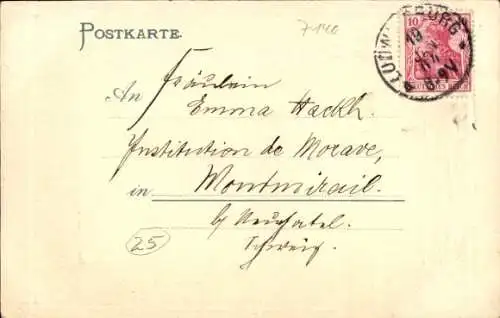 7140
POSTKARTE.
LUDWIGSBURG
19
8-9V
10
DEUTSCHES REICH
An Fräulein
Emma Hackh.
Institution de Morave,
in Montmirail.
by Neuchatel.
Schweiz.
25